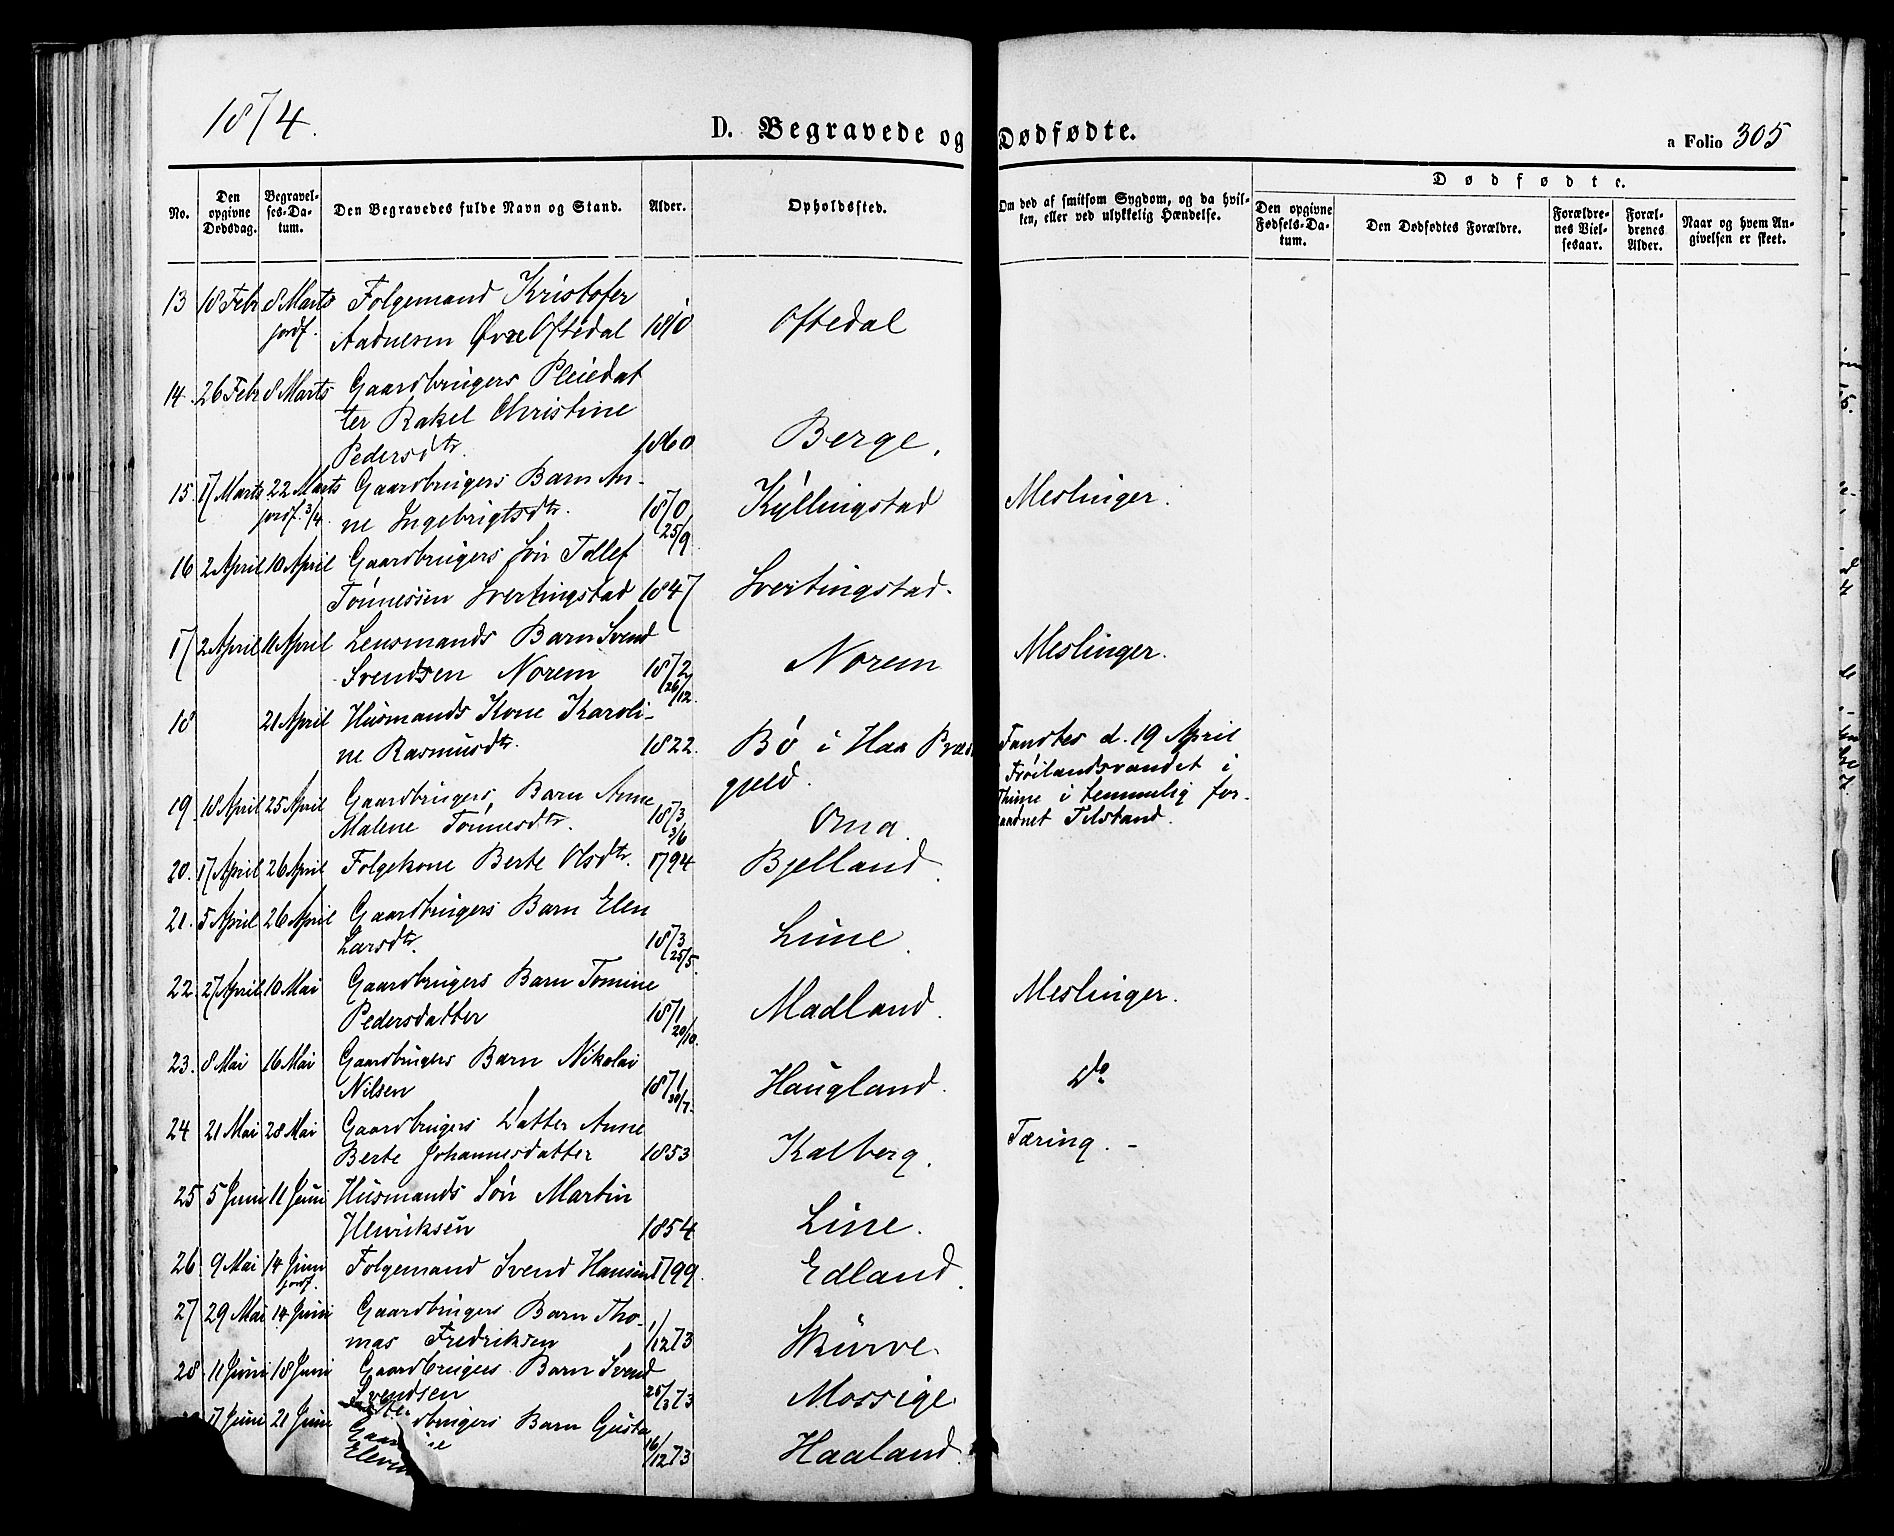 1874.
D. Begravede og Dødfødte.
a Folio 305
No.
Den opgivne Dødsdag.
Begravelses-Datum.
Den Begravedes fulde Navn og Stand.
Alder.
Opholdssted.
Om død af smitsom Sygdom, og da hvilken, eller ved ulykkelig Hændelse.
Dødfødte.
Den opgivne Fødsels-Datum.
Den Dødfødtes Forældre.
Forældrenes Vielsesaar.
Forældrenes Alder.
Naar og hvem Angivelsen er skeet.
13 18 Febr 8 Marts Folgemand Kristofer
jordf. Aadnesen Øvre Oftedal 1810 Oftedal
14. 26 Febr 8 Marts Gaardbrugers Pleiedat
ter Rakel Christine
Pedersdtr. 1860 Berge.
15. 17 Marts 22 Marts Gaardbrugers Barn An-
jordf. 3/4. ne Ingebrigtsdtr. 1870 25/9 Kyllingstad Meslinger.
16 2 April 10 April Gaardbrugers Søn Tollef
Tønnessen Svertingstad 1847 Svertingstad.
17 2 April 11 April Lensmands Barn Svend
Svendsen Norem 1872 26/12. Norem Meslinger.
18 21 April Husmands Kone Karoli-
ne Rasmusdtr. 1822. Bø i Haa Præs
gjeld.
Fandtes d. 19 April
Frøilandsvandet i
Thime i temmelig for-
raadnet Tilstand.
19 18 April 25 April Gaardbrugers Barn Anne
Malene Tønnesdtr. 1873 3/6 Oma.
20. 17 April 26 April Folgekone Berte Olsdtr. 1794 Bjelland.
21. 5 April 26 April Gaardbrugers Barn Elen
Larsdtr. 1873 25/5. Lime.
22. 27 April 10 Mai Gaardbrugers Barn Tomine
Pedersdatter 1871 20/10. Madland. Meslinger.
23. 8 Mai 16 Mai Gaardbrugers Barn Nikolai
Nilsen 1871 30/7. Haugland. Do
24 21 Mai 28 Mai Gaardbrugers Datter Anne
Berte Johannesdatter 1853 Kalberg. Tæring. -
25 5 Juni 11 Juni Husmands Søn Martin
Henriksen 1854 Line.
26 9 Mai 14 Juni Folgemand Svend Hansen 1799. Edland.
jordf.
27 29 Mai 14 Juni Gaardbrugers Barn Tho-
mas Fredriksen 1/12 73 Skurve.
28 11 Juni 18 Juni Gaardbrugers Barn Svend
Svendsen 25/3 73 Mossige.
17 Juni 21 Juni Gaardbrugers Barn Gusta
16/12 73 Haaland.